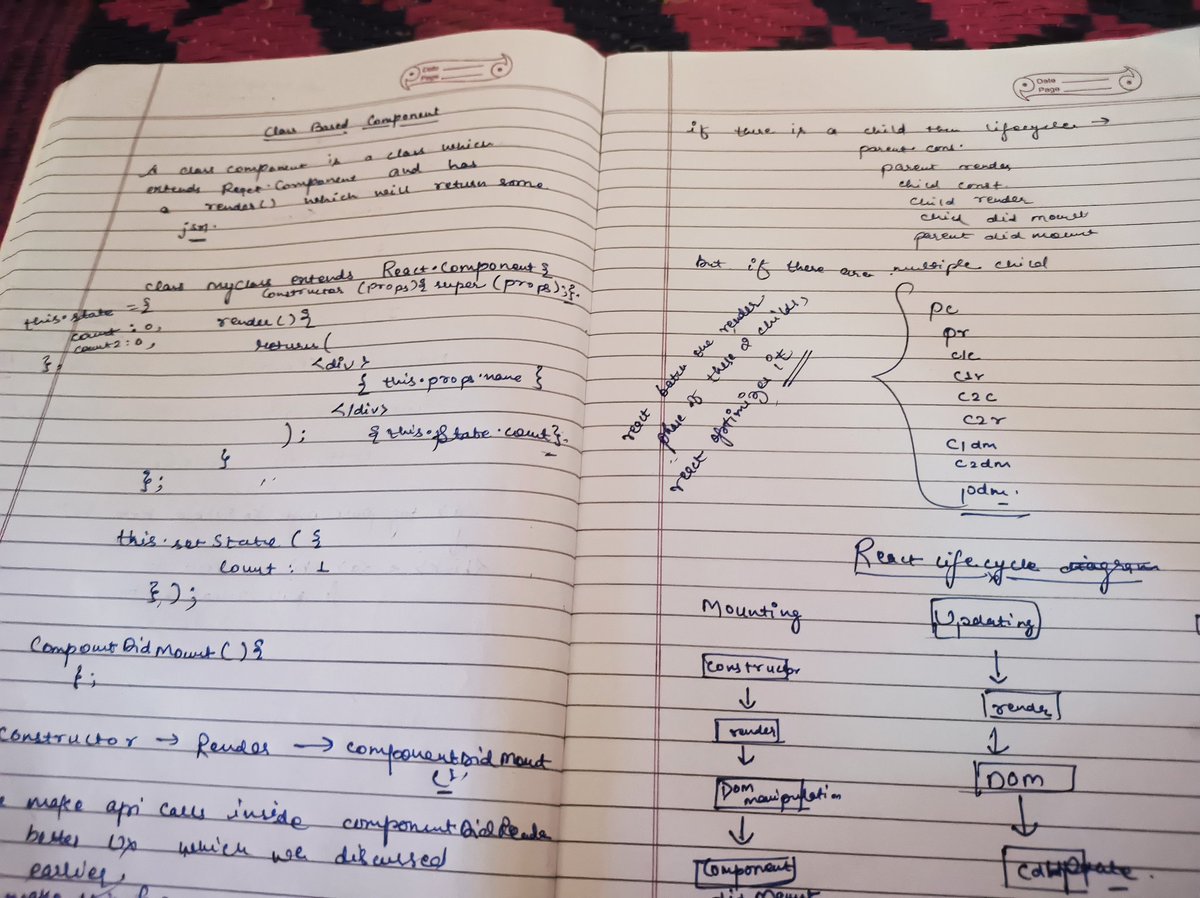 Date
Page
Class Based Component
A class component is a class which
extends React.Component and has
a render() which will return some
jsx.
class myClass extends React.Component {
constructor (props) { super (props); }.
this.state = {
count : 0,
count2 : 0,
};
render () {
return (
<div>
{ this.props.name }
</div>
);
{ this.state.count }.
}
};
this.setState ( {
count : 1
} );
Constructor → Render → componentDidMount
();
make api calls inside
better UX which we discussed
earlier,
Date
Page
if there is a child then lifecycle →
parent cons.
parent render
child const.
child render
child did mount
parent did mount
But if there are multiple child
react batch the render
phase of these 2 childs,
react optimizes it
pc
pr
c1c
c1r
c2c
c2r
c1dm
c2dm
pdm.
React Lifecycle diagram
Mounting
constructor
↓
render
↓
Dom
manipulation
↓
Component
did Mount
Updating
↓
render
↓
DOM
↓